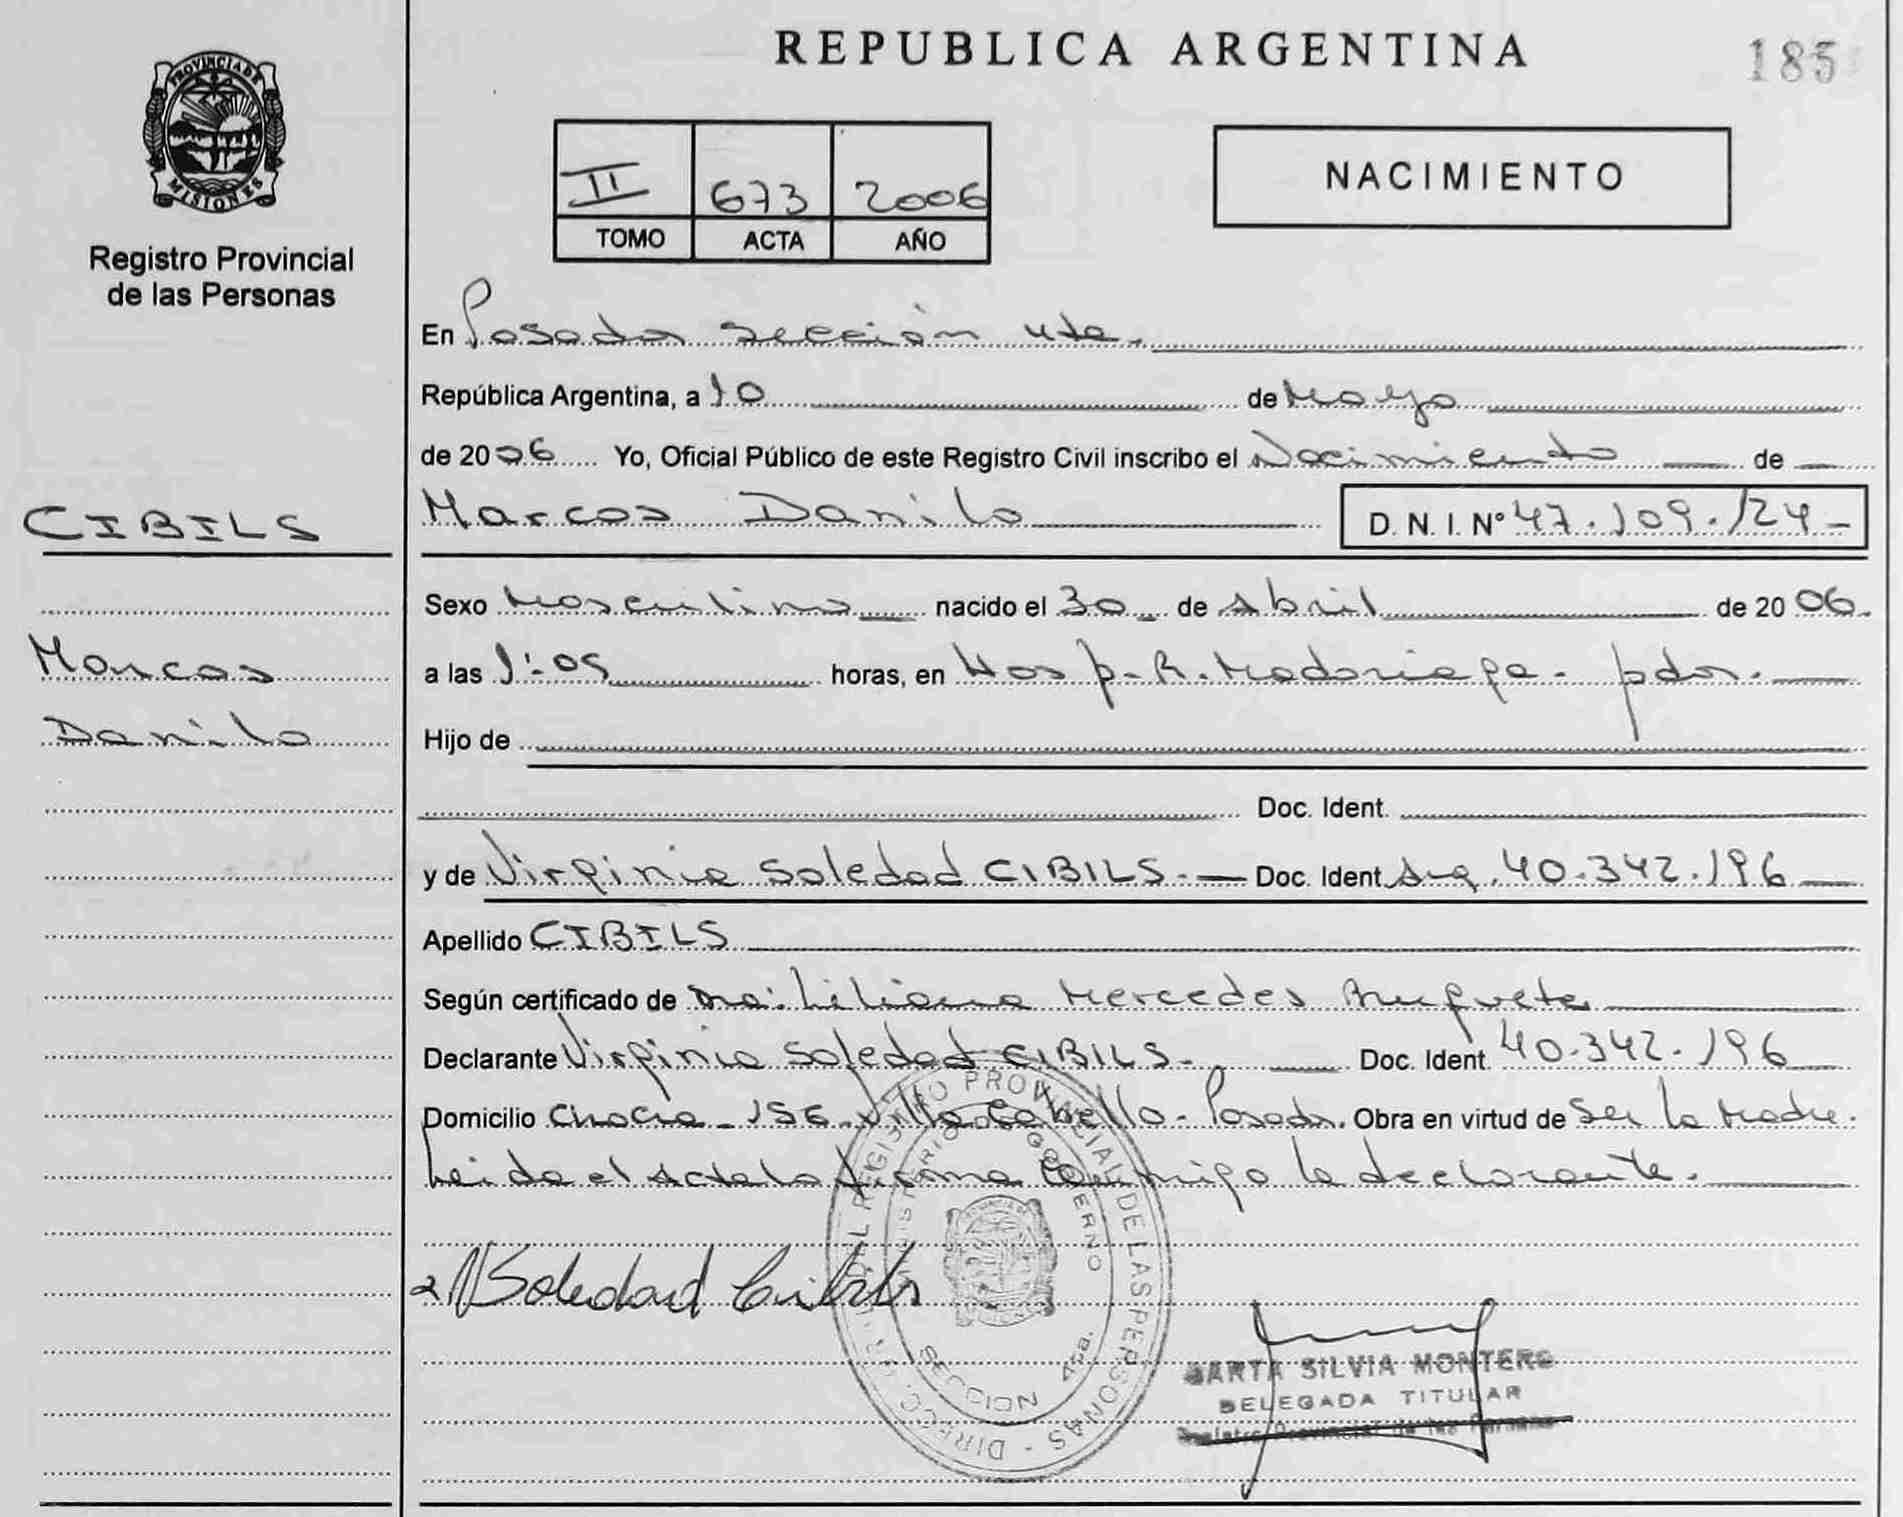 REPUBLICA ARGENTINA
185
PROVINCIA DE MISIONES
Registro Provincial
de las Personas
II 673 2006
TOMO ACTA AÑO
NACIMIENTO
En Posadas sección 4ta.
República Argentina, a 10 de Mayo
de 2006 Yo, Oficial Público de este Registro Civil inscribo el Nacimiento de
CIBILS
Marcos Danilo D. N. I. Nº 47.109.124
Sexo Masculino nacido el 30 de Abril de 2006.
Marcos
a las 1:05 horas, en Hosp. R. Madariaga - pdas.
Danilo
Hijo de
Doc. Ident.
y de Virginia Soledad CIBILS. Doc. Ident. Arg. 40.342.196
Apellido CIBILS
Según certificado de Dra: Liliana Mercedes
Declarante Virginia Soledad CIBILS. Doc. Ident. 40.342.196
Domicilio Chacra 156 Villa Cabello - Posadas. Obra en virtud de ser la Madre.
Leida el Acta la firma conmigo la declarante.
Soledad Cibils
DIRECC. GRAL REGISTRO PROVINCIAL DE LAS PERSONAS
MINISTERIO DE GOBIERNO
SECCION 4ta.
MARTA SILVIA MONTERO
DELEGADA TITULAR
Registro Provincial de las Personas